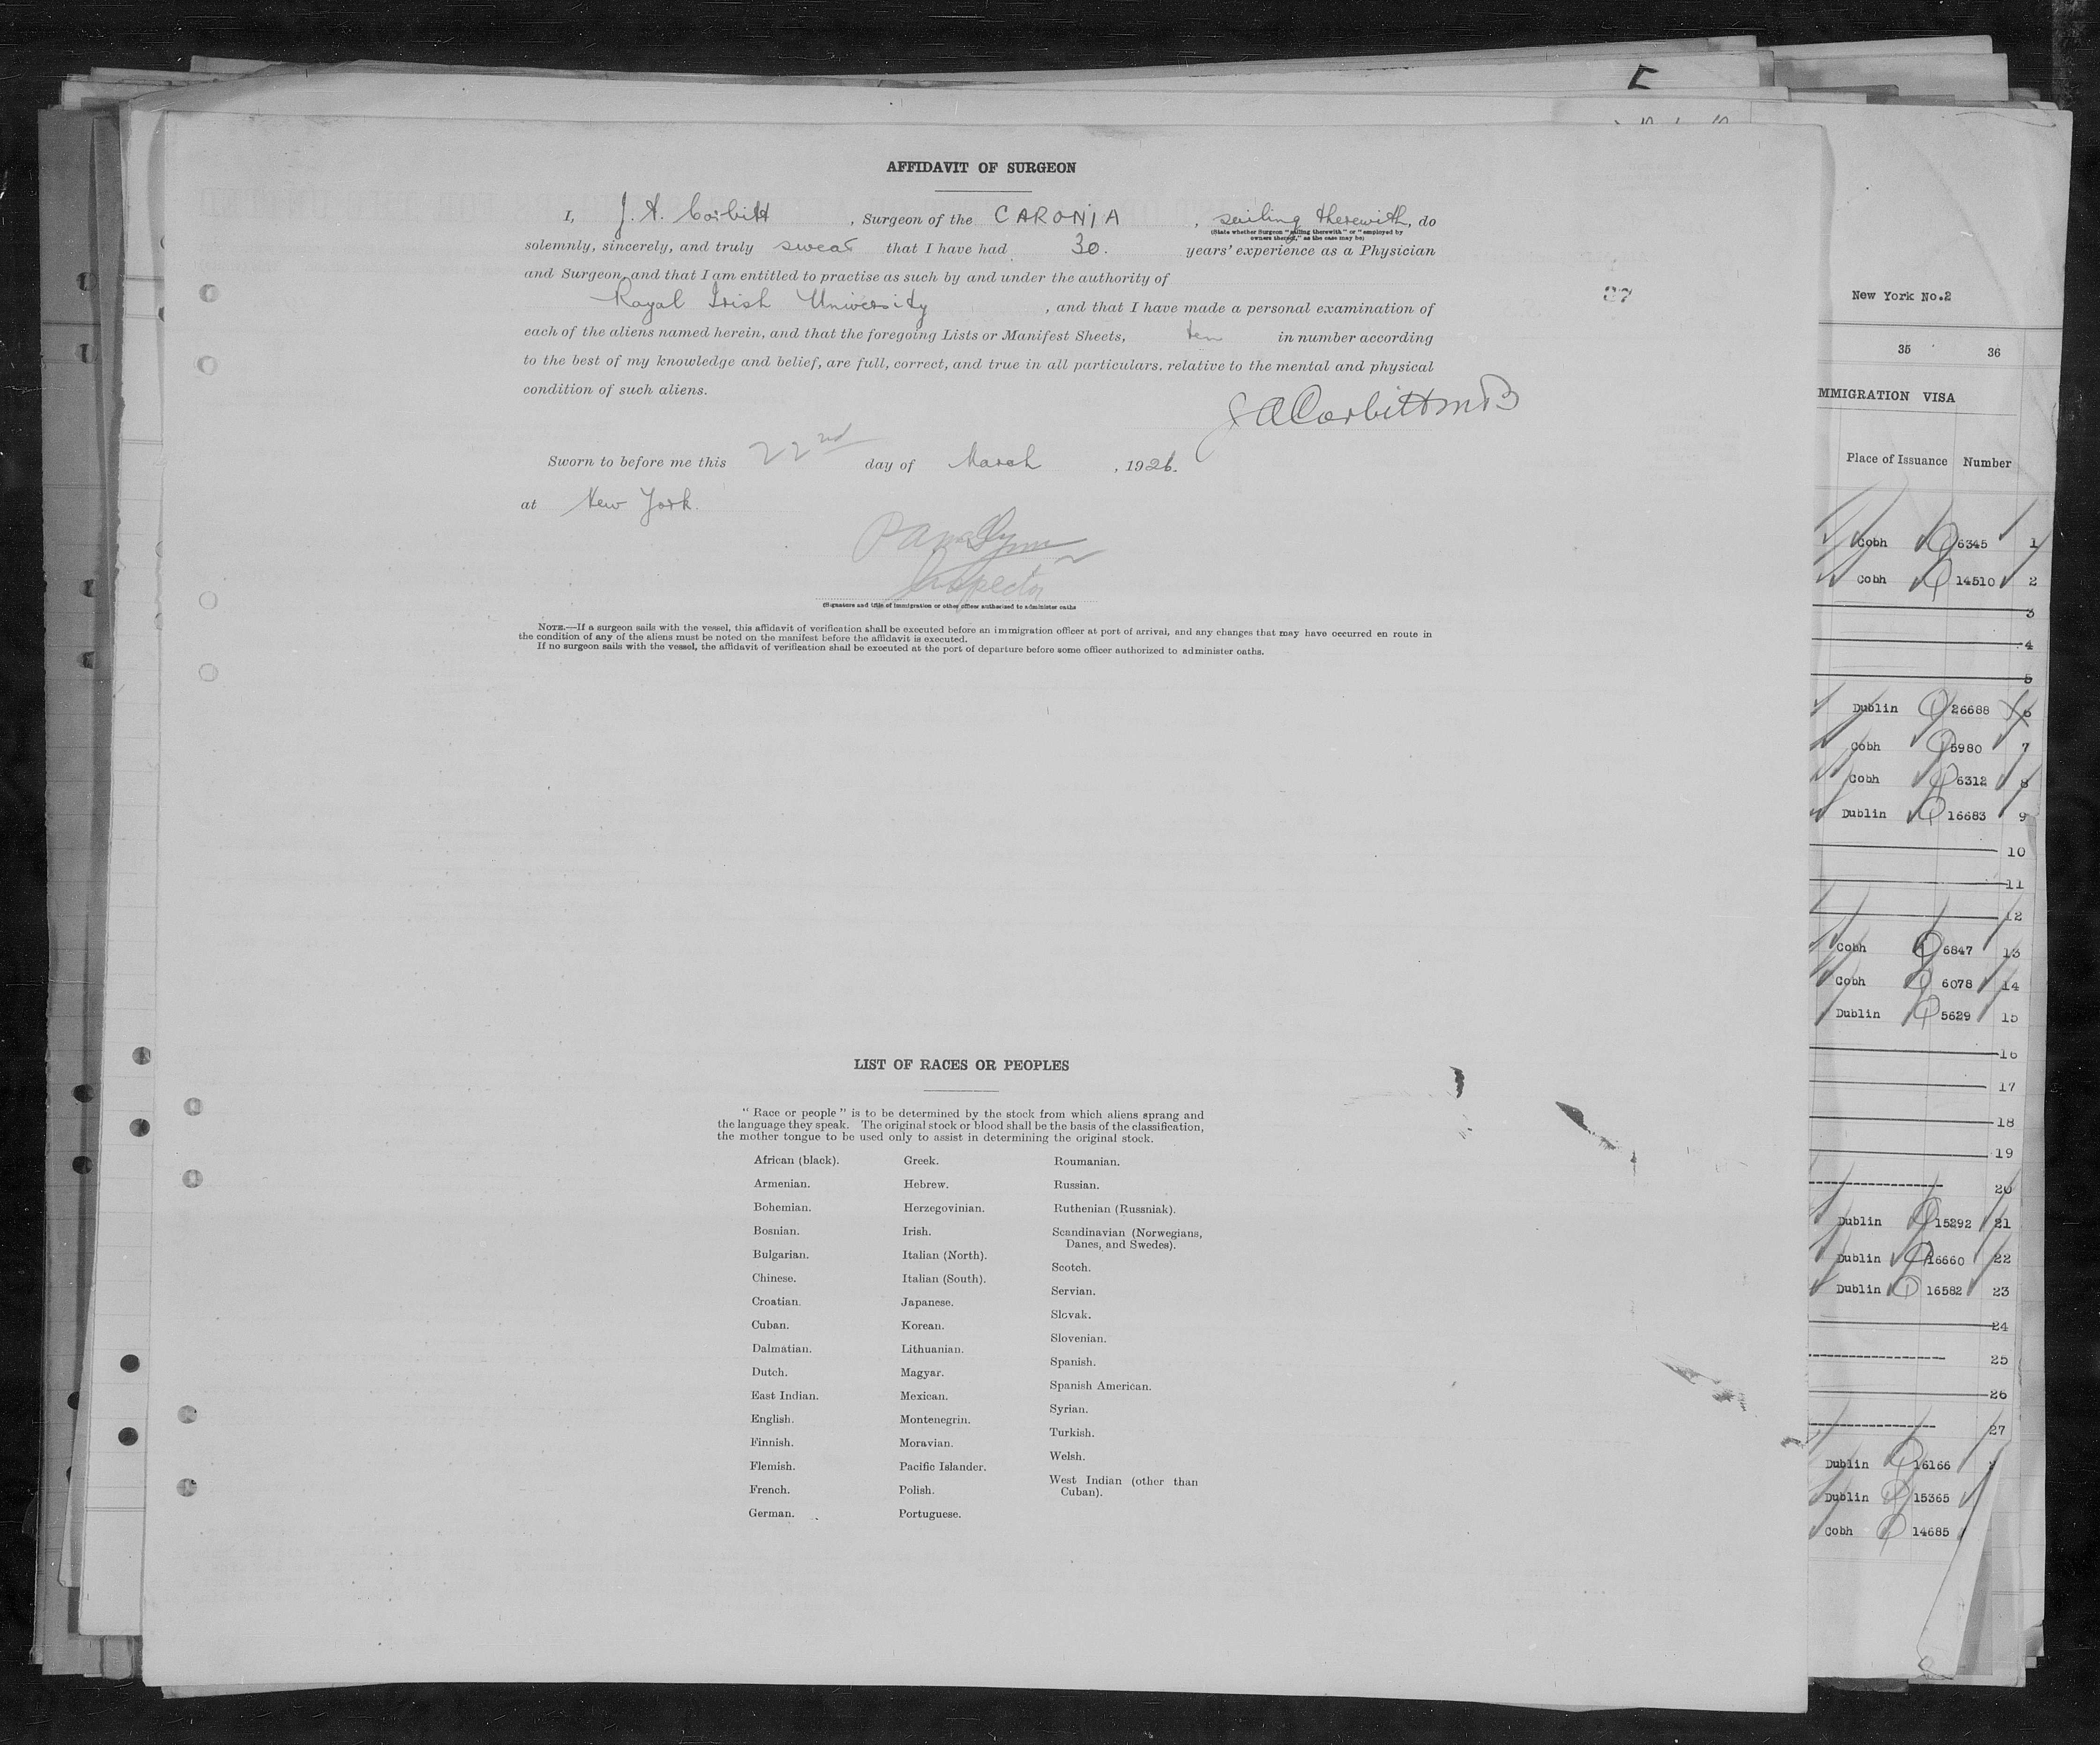 AFFIDAVIT OF SURGEON
I, J. A. Corbitt, Surgeon of the CARONIA, sailing therewith, do
(State whether Surgeon "sailing therewith" or "employed by
owners thereof," as the case may be)
solemnly, sincerely, and truly swear that I have had 30. years' experience as a Physician
and Surgeon, and that I am entitled to practise as such by and under the authority of
Royal Irish University, and that I have made a personal examination of
each of the aliens named herein, and that the foregoing Lists or Manifest Sheets, ten in number according
to the best of my knowledge and belief, are full, correct, and true in all particulars. relative to the mental and physical
condition of such aliens.
J A Corbitt MB
Sworn to before me this 22nd day of March, 1926.
at New York.
Inspector
(Signature and title of immigration or other officer authorized to administer oaths
NOTE.—If a surgeon sails with the vessel, this affidavit of verification shall be executed before an immigration officer at port of arrival, and any changes that may have occurred en route in
the condition of any of the aliens must be noted on the manifest before the affidavit is executed.
If no surgeon sails with the vessel, the affidavit of verification shall be executed at the port of departure before some officer authorized to administer oaths.
37
LIST OF RACES OR PEOPLES
"Race or people" is to be determined by the stock from which aliens sprang and
the language they speak. The original stock or blood shall be the basis of the classification,
the mother tongue to be used only to assist in determining the original stock.
African (black).
Armenian.
Bohemian.
Bosnian.
Bulgarian.
Chinese.
Croatian.
Cuban.
Dalmatian.
Dutch.
East Indian.
English.
Finnish.
Flemish.
French.
German.
Greek.
Hebrew.
Herzegovinian.
Irish.
Italian (North).
Italian (South).
Japanese.
Korean.
Lithuanian.
Magyar.
Mexican.
Montenegrin.
Moravian.
Pacific Islander.
Polish.
Portuguese.
Roumanian.
Russian.
Ruthenian (Russniak).
Scandinavian (Norwegians,
Danes, and Swedes).
Scotch.
Servian.
Slovak.
Slovenian.
Spanish.
Spanish American.
Syrian.
Turkish.
Welsh.
West Indian (other than
Cuban).
5
New York No.2
35 36
MMIGRATION VISA
Place of Issuance Number
Cobh 6345 1
Cobh 14510 2
3
4
5
Dublin 26688 6
Cobh 5980 7
Cobh 6312 8
Dublin 16683 9
10
11
12
Cobh 6847 13
Cobh 6078 14
Dublin 5629 15
16
17
18
19
20
Dublin 15292 21
Dublin 16660 22
Dublin 16582 23
24
25
26
27
Dublin 16166 2
Dublin 15365
Cobh 14685